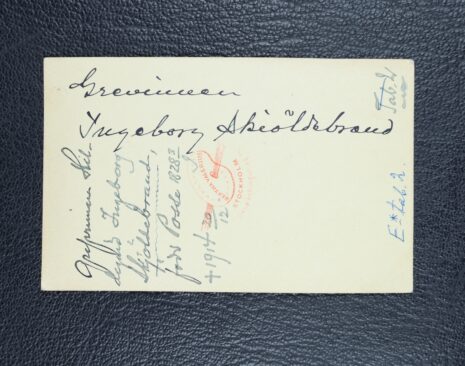 Grevinnan
Ingeborg Skiöldebrand
Grefvinnan
Ingeborg
Skjöldebrand,
född Posse 1828
† 1914 20/12
STOCKHOLM
Tab. 4
E* tab. 2.